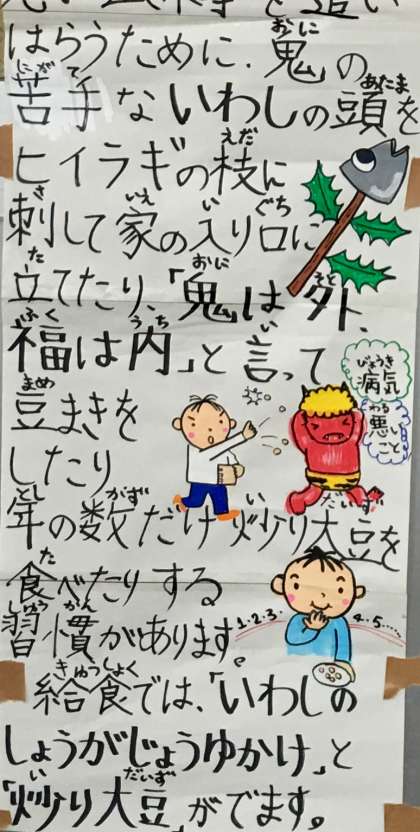 はらうために、鬼の
苦手ないわしの頭を
ヒイラギの枝に
刺して家の入り口に
立てたり、「鬼は外、
福は内」と言って
豆まきを
したり
年の数だけ炒り大豆を
食べたりする
習慣があります。
給食では、「いわしの
しょうがじょうゆかけ」と
「炒り大豆」がでます。
病気
悪い
こと
1.2.3.
4.5.....